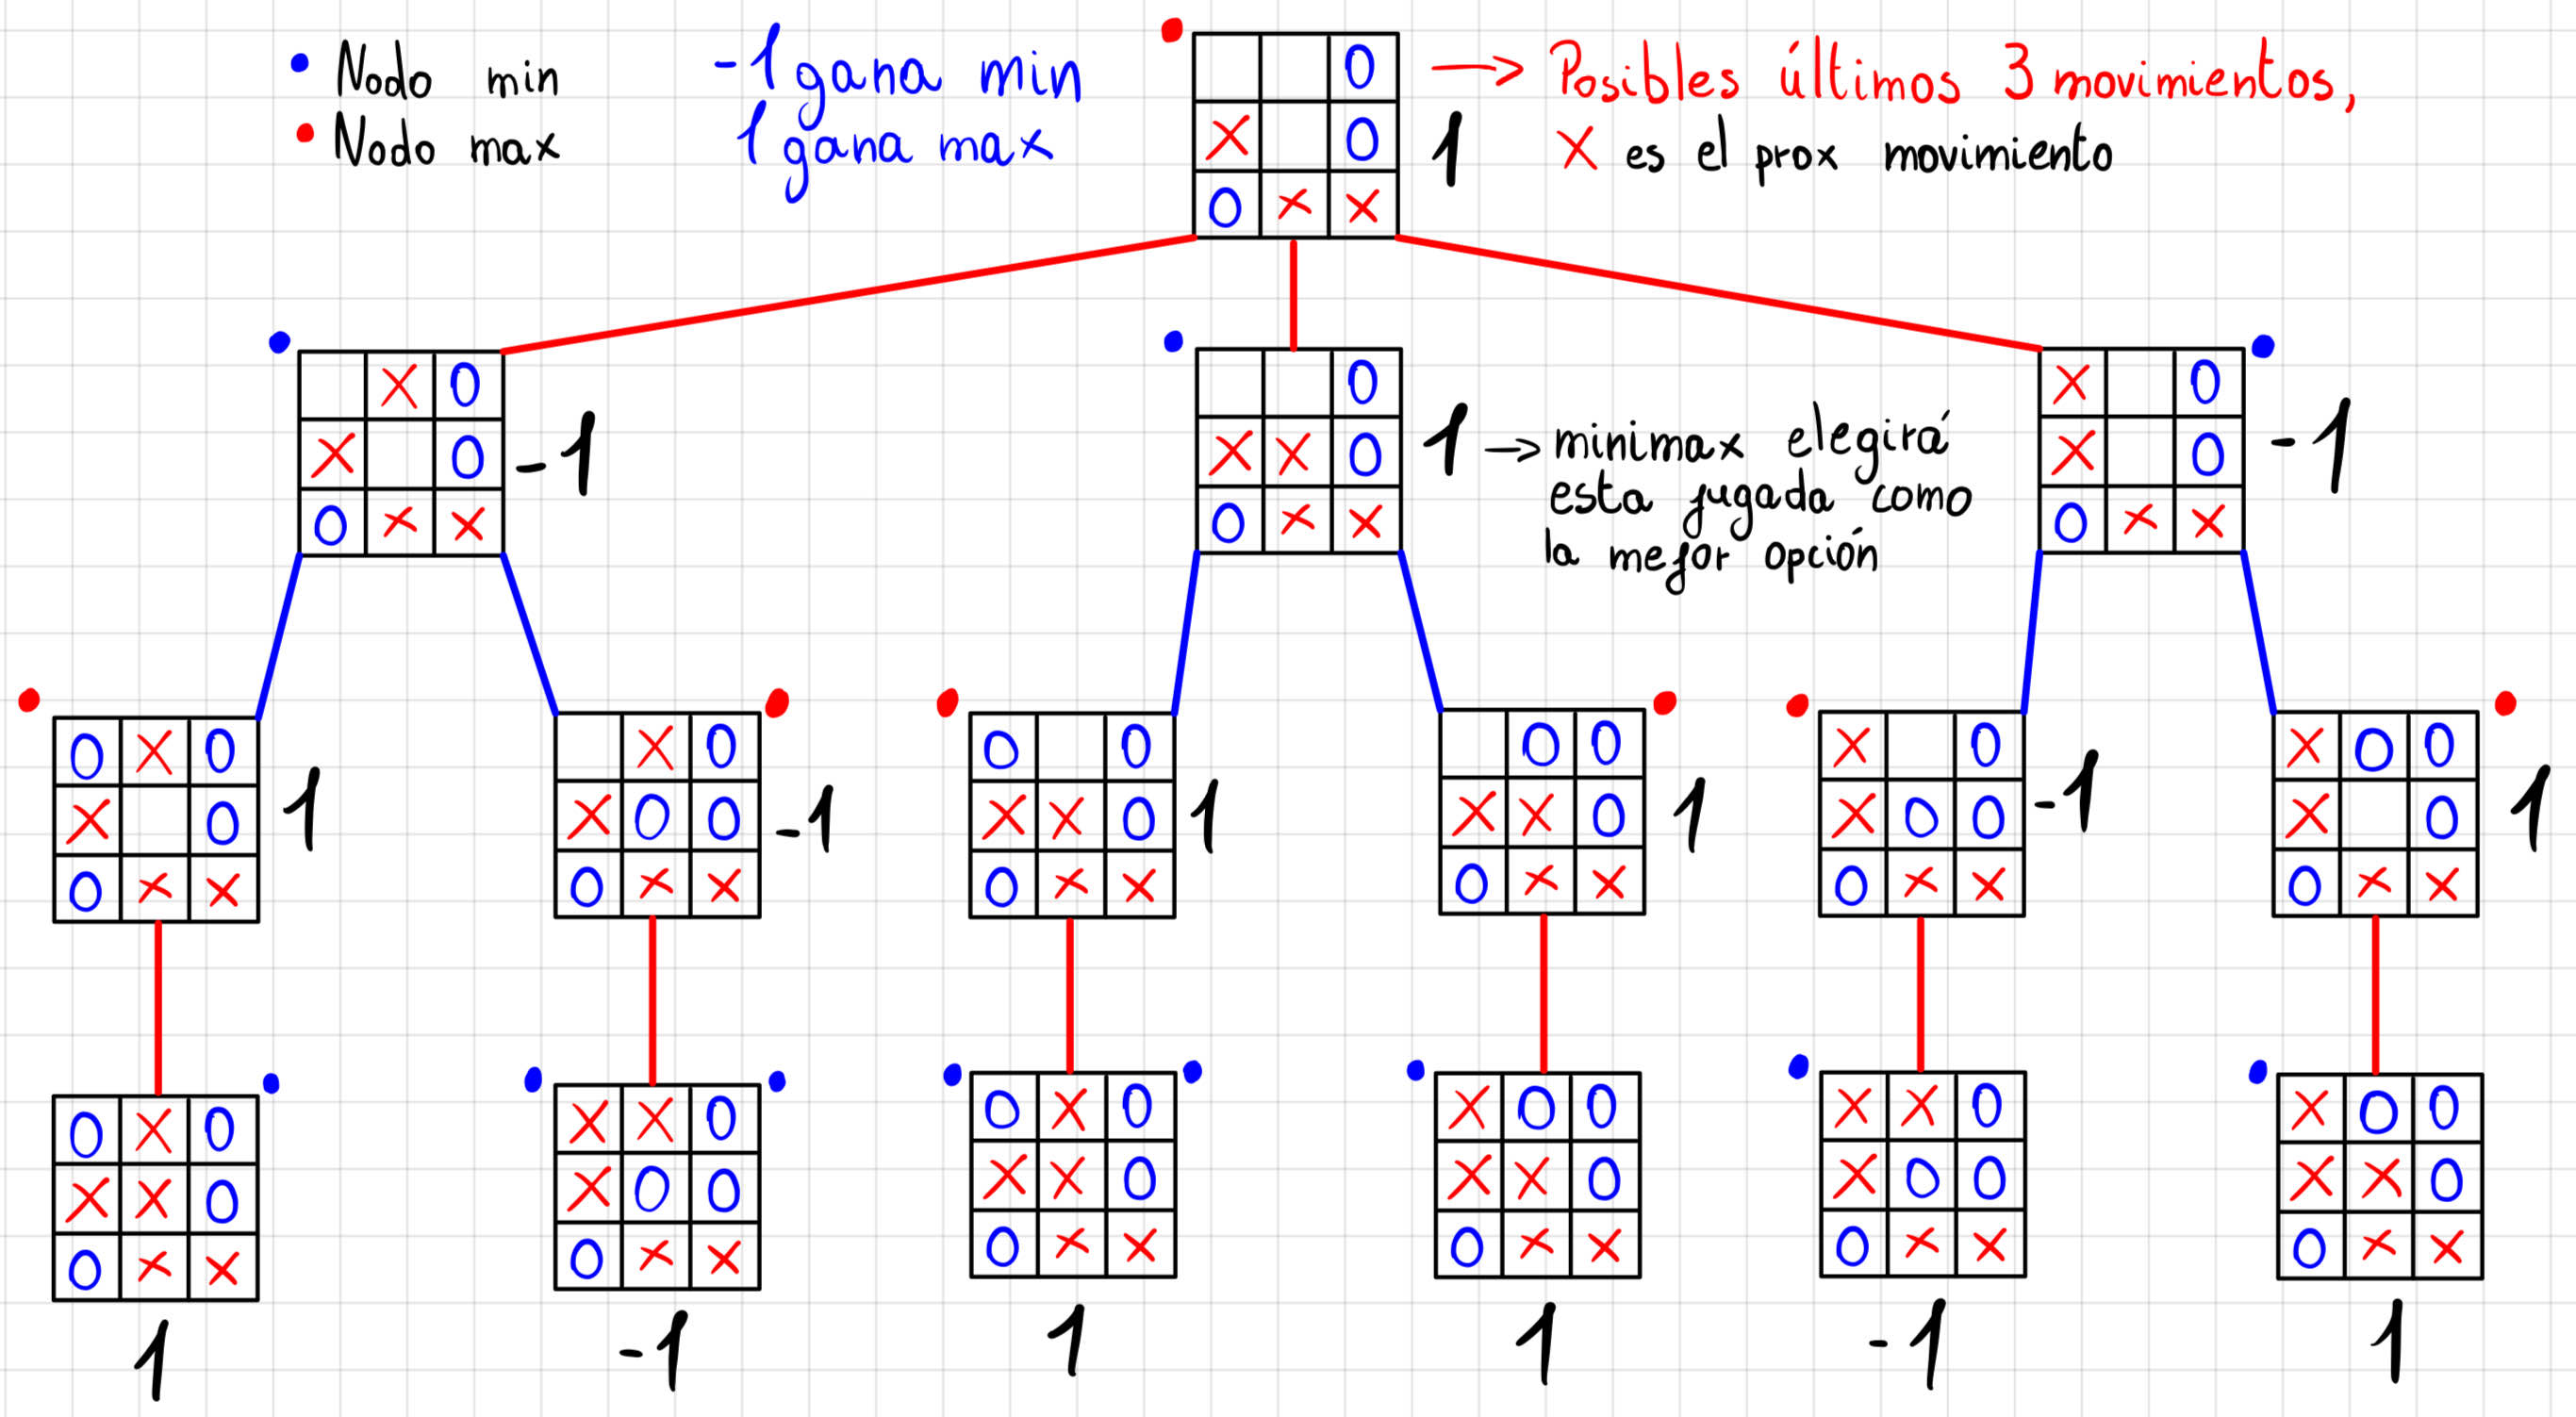 • Nodo min
• Nodo max
-1 gana min
1 gana max
O
X O
O X X
1
→ Posibles últimos 3 movimientos,
X es el prox movimiento
X O
X O
O X X
-1
O
X X O
O X X
1
→ minimax elegirá
esta jugada como
la mejor opción
X O
X O
O X X
-1
O X O
X O
O X X
1
X O
X O O
O X X
-1
O O
X X O
O X X
1
O O
X X O
O X X
1
X O
X O O
O X X
-1
X O O
X O
O X X
1
O X O
X X O
O X X
1
X X O
X O O
O X X
-1
O X O
X X O
O X X
1
X O O
X X O
O X X
1
X X O
X O O
O X X
-1
X O O
X X O
O X X
1